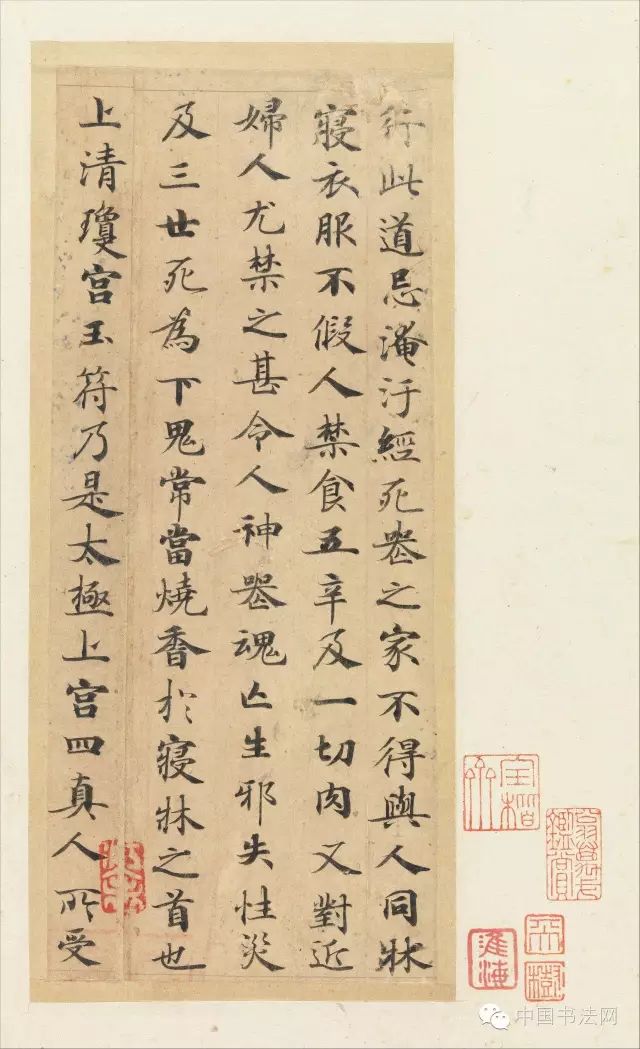 行此道忌淹汙經死喪之家不得與人同牀
寢衣服不假人禁食五辛及一切肉又對近
婦人尤禁之甚令人神喪魂亡生邪失性災
及三世死為下鬼常當燒香於寢牀之首也
上清瓊宮玉符乃是太極上宮四真人所受
中国书法网